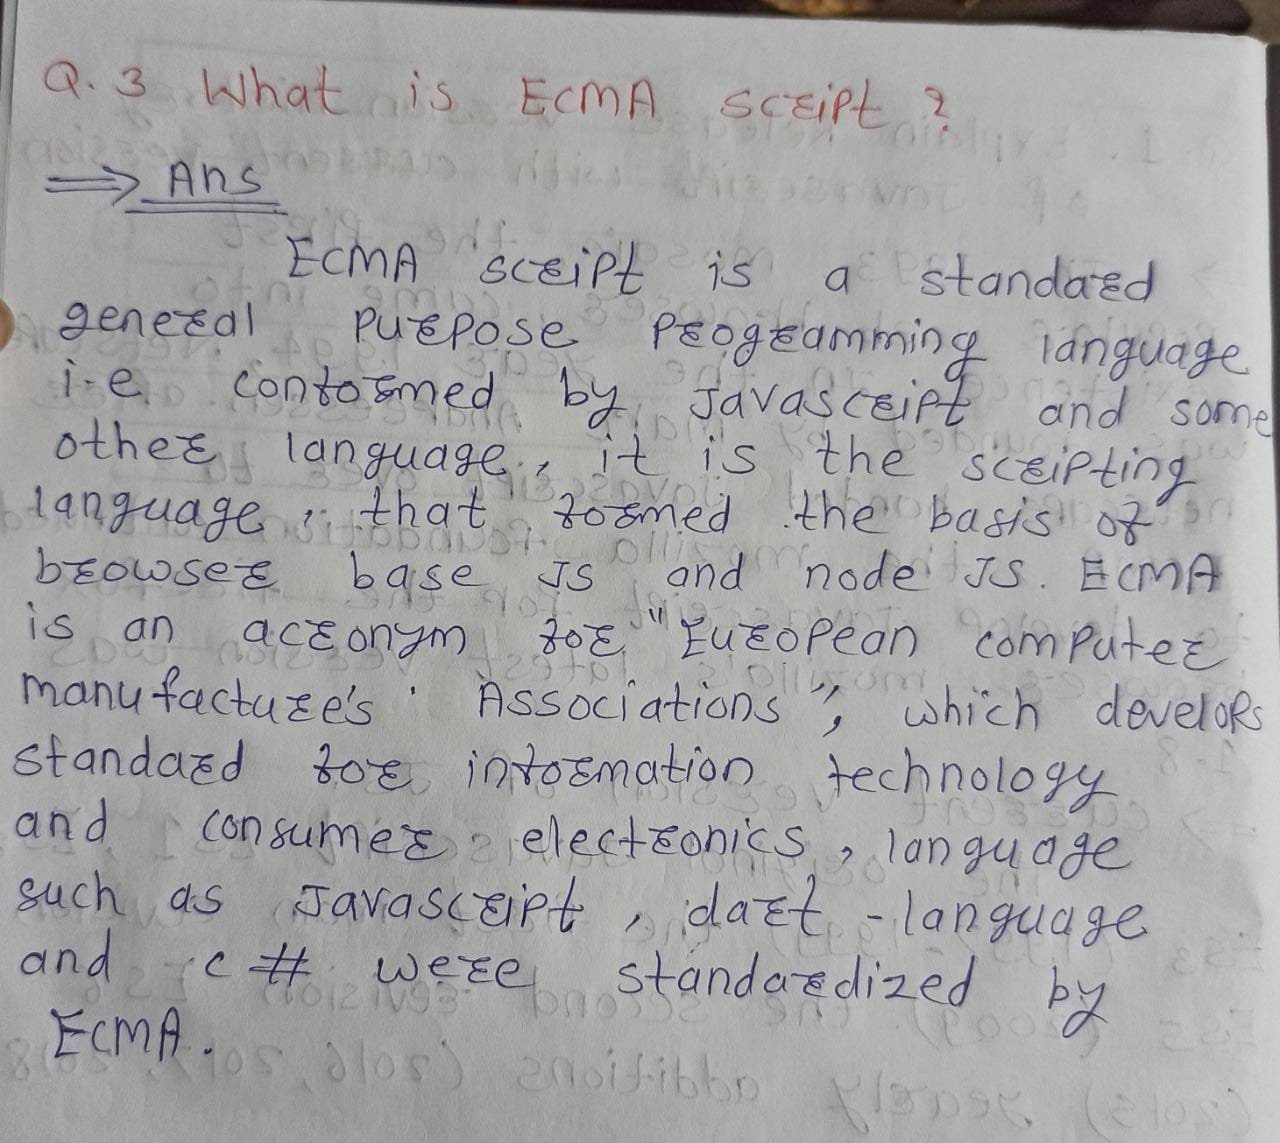 Q. 3 What is EcmA script ?
⟹ Ans
EcMA script is a standard
general purpose programming language
i.e conformed by Javascript and some
other language, it is the scripting
language, that formed the basis of
browser base JS and node JS. ECMA
is an acronym for "European computer
manufacture's Associations", which develops
standard for information technology
and consumer electronics, language
such as Javascript, dart -language
and c # were standardized by
EcMA.